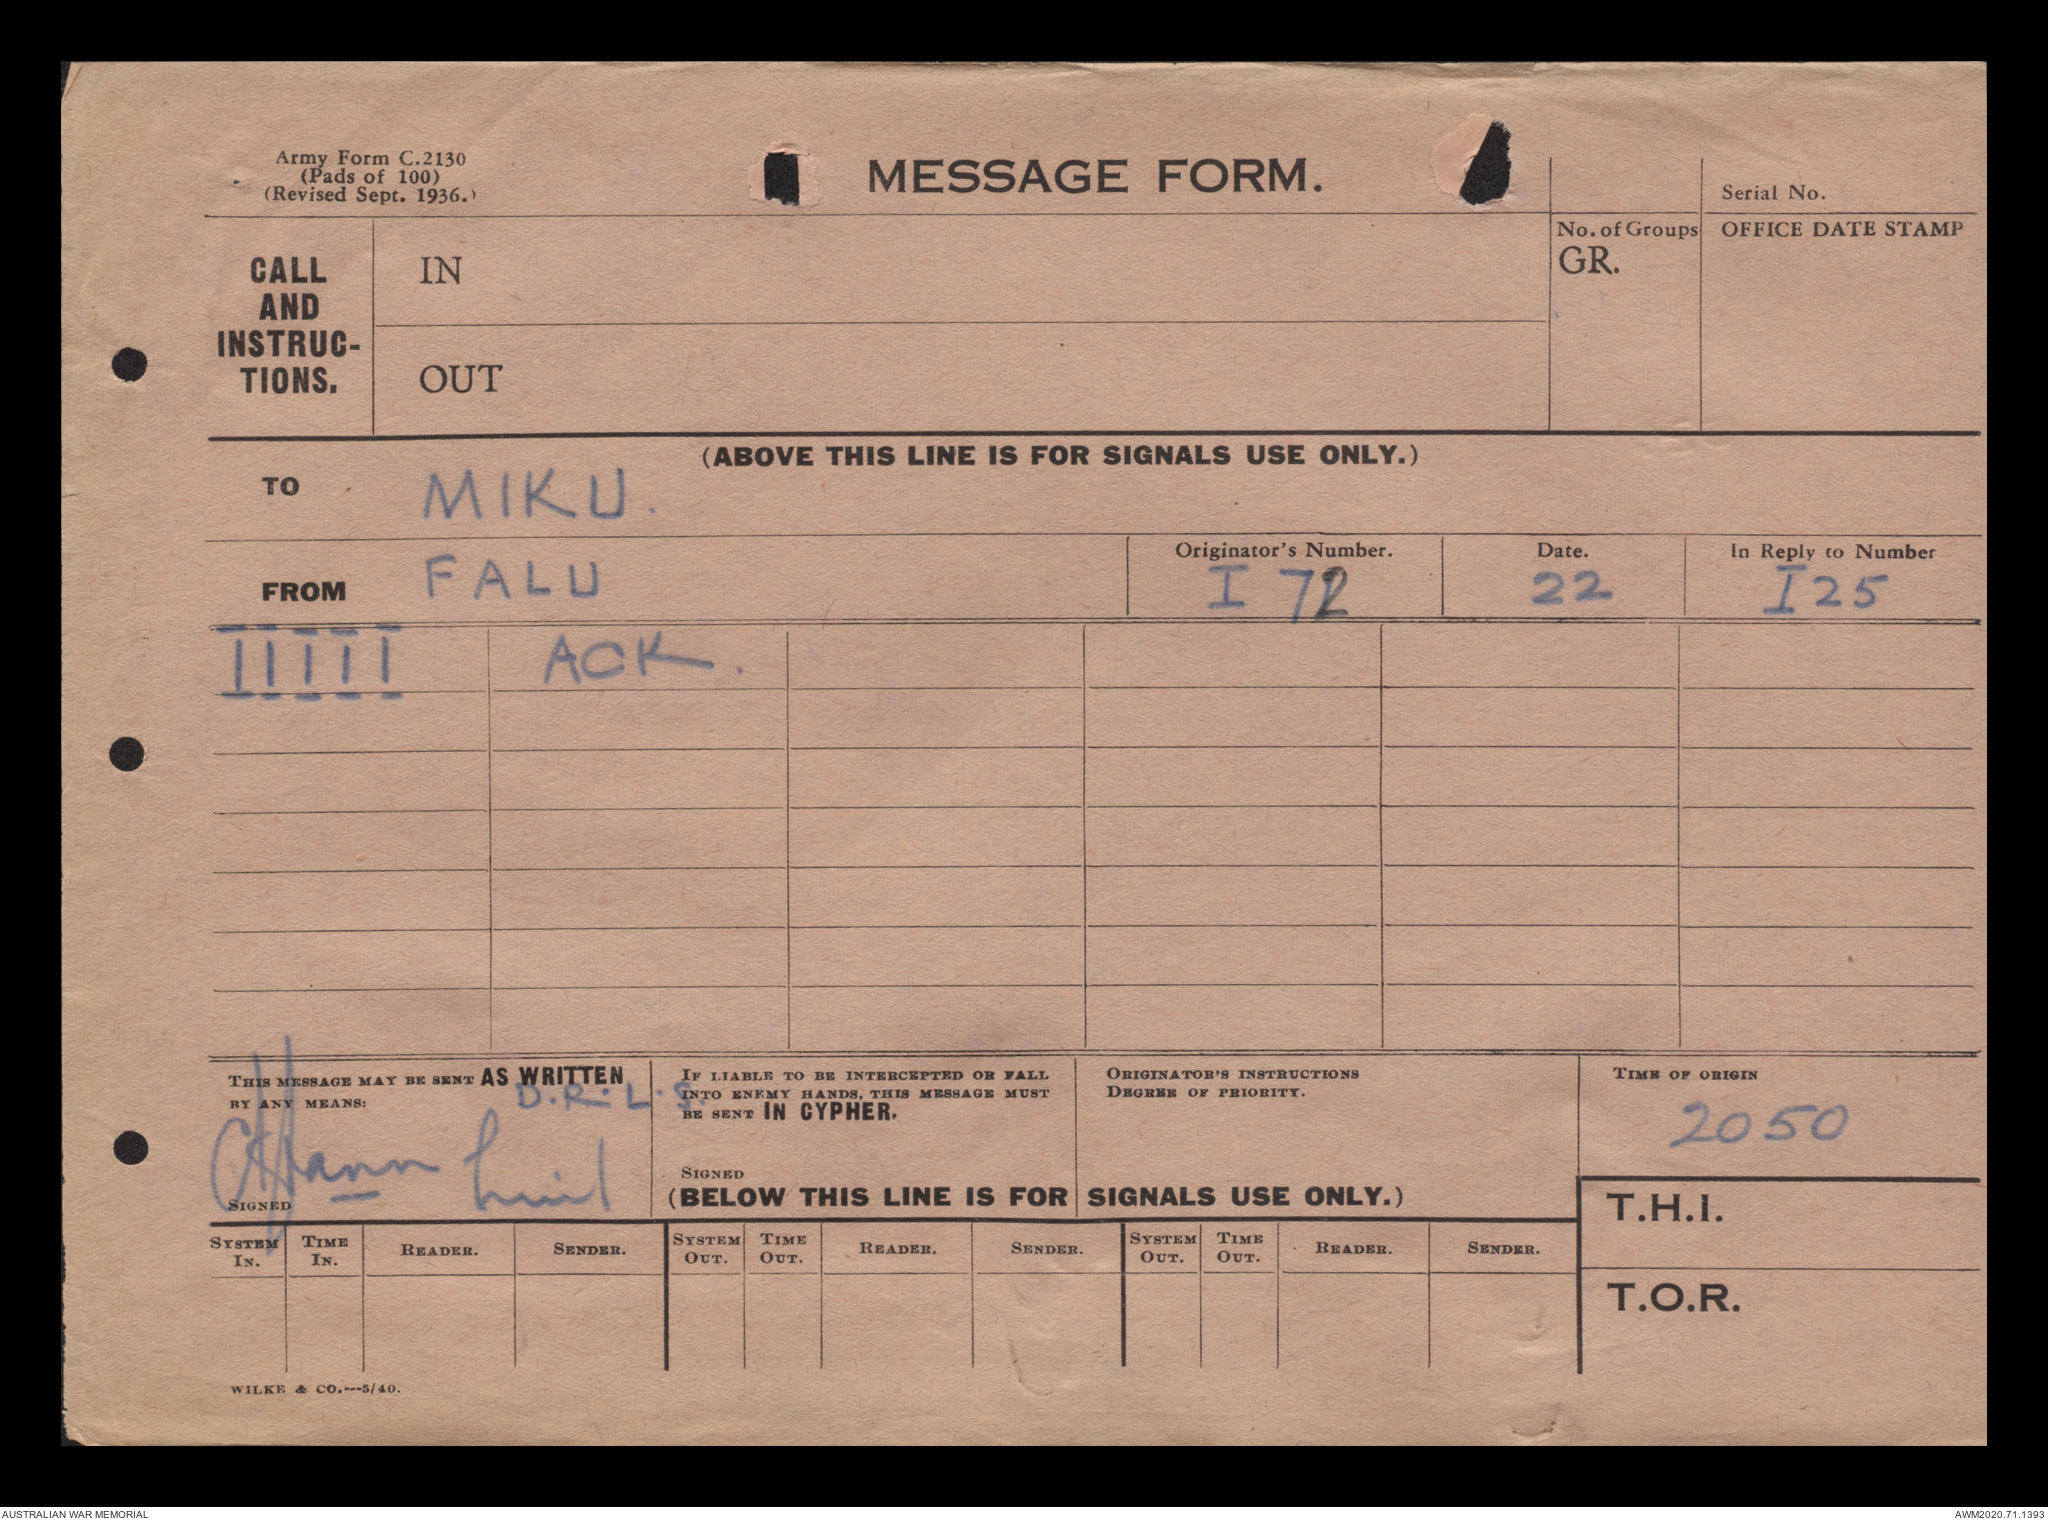 Army Form C.2130
(Pads of 100)
(Revised Sept. 1936.)
MESSAGE FORM.
Serial No.
CALL
AND
INSTRUC-
TIONS.
IN
OUT
No. of Groups
GR.
OFFICE DATE STAMP
(ABOVE THIS LINE IS FOR SIGNALS USE ONLY.)
TO MIKU.
FROM FALU
Originator's Number.
I 72
Date.
22
In Reply to Number
I 25
IIIII ACK.
THIS MESSAGE MAY BE SENT AS WRITTEN
BY ANY MEANS:
D.R.L.S.
SIGNED
IF LIABLE TO BE INTERCEPTED OR FALL
INTO ENEMY HANDS, THIS MESSAGE MUST
BE SENT IN CYPHER.
SIGNED
ORIGINATOR'S INSTRUCTIONS
DEGREE OF PRIORITY.
TIME OF ORIGIN
2050
(BELOW THIS LINE IS FOR SIGNALS USE ONLY.)
T.H.I.
T.O.R.
SYSTEM IN.
TIME IN.
READER.
SENDER.
SYSTEM OUT.
TIME OUT.
READER.
SENDER.
SYSTEM OUT.
TIME OUT.
READER.
SENDER.
WILKE & CO.---5/40.
AUSTRALIAN WAR MEMORIAL
AWM2020.71.1393